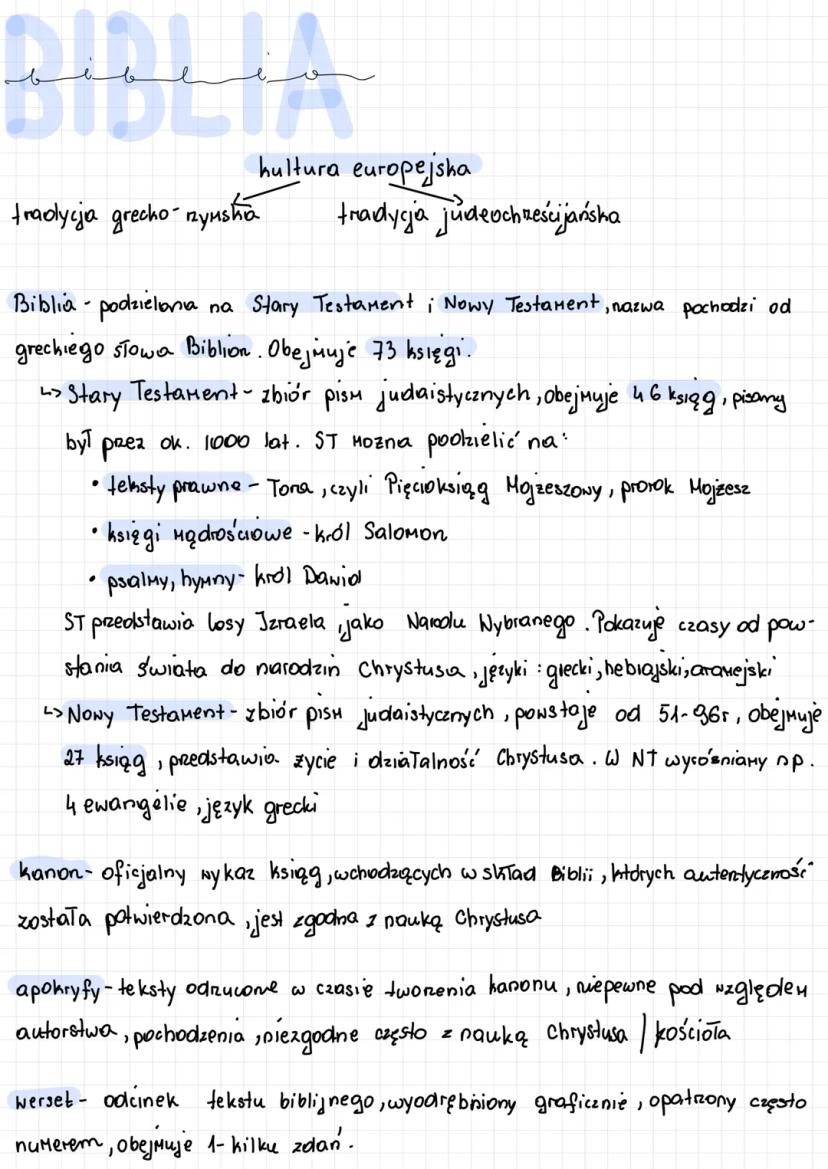 BIBLIA
biblia
kultura europejska
tradycja grecko-rzymska tradycja judeochrześcijańska
Biblia - podzielona na Stary Testament i Nowy Testament, nazwa pochodzi od
greckiego słowa Biblion. Obejmuje 73 księgi.
↳ Stary Testament - zbiór pism judaistycznych, obejmuje 46 ksiąg, pisany
był przez ok. 1000 lat. ST można podzielić na:
• teksty prawne - Tora, czyli Pięcioksiąg Mojżeszowy, prorok Mojżesz
• księgi mądrościowe - król Salomon
• psalmy, hymny - król Dawid
ST przedstawia losy Izraela, jako Narodu Wybranego. Pokazuje czasy od pow-
stania świata do narodzin Chrystusa, języki: grecki, hebrajski, aramejski
↳ Nowy Testament - zbiór pism judaistycznych, powstaje od 51-96r, obejmuje
27 ksiąg, przedstawia życie i działalność Chrystusa. W NT wyróżniamy np.
4 ewangelie, język grecki
kanon - oficjalny wykaz ksiąg, wchodzących w skład Biblii, których autentyczność
została potwierdzona, jest zgodna z nauką Chrystusa
apokryfy - teksty odrzucone w czasie tworzenia kanonu, niepewne pod względem
autorstwa, pochodzenia, niezgodne często z nauką Chrystusa / kościoła
werset - odcinek tekstu biblijnego, wyodrębniony graficznie, opatrzony często
numerem, obejmuje 1-kilku zdań.